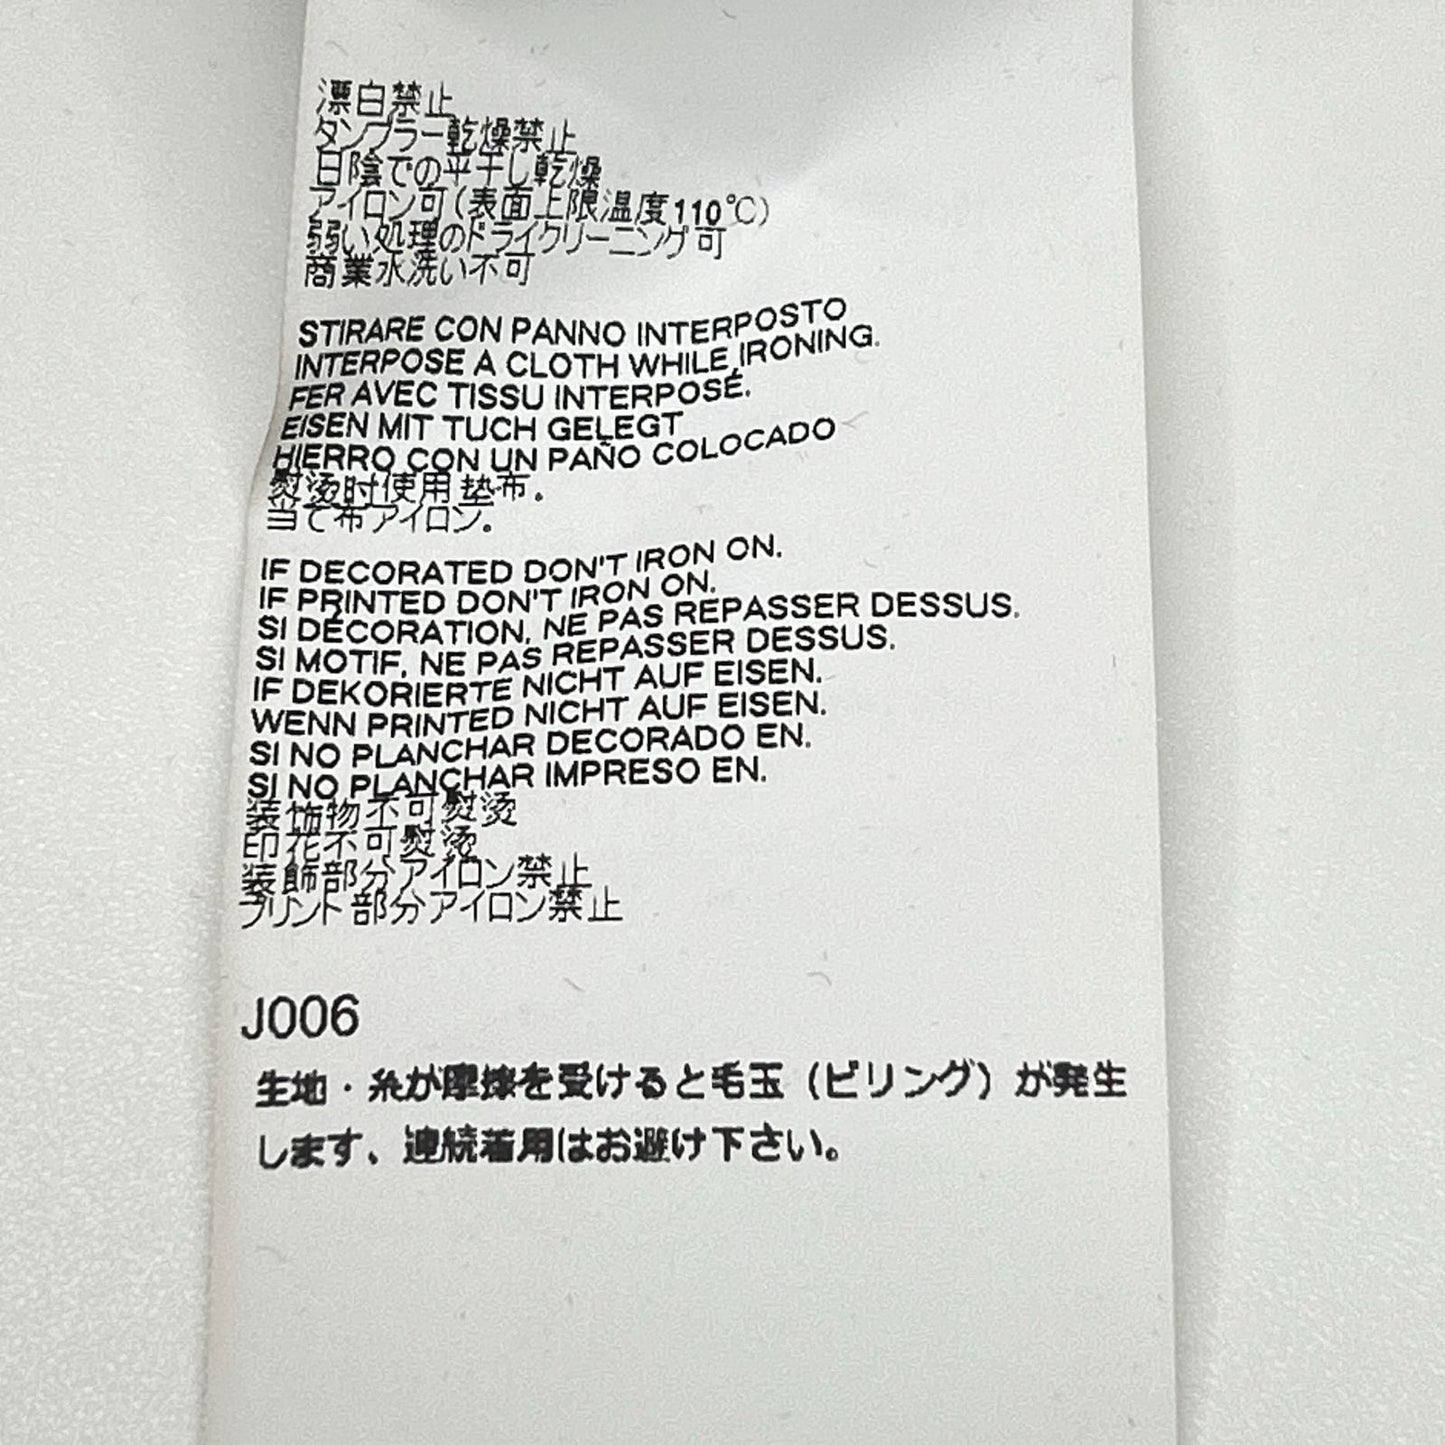 漂白禁止
タンブラー乾燥禁止
日陰での平干し乾燥
アイロン可(表面上限温度110℃)
弱い処理のドライクリーニング可
商業水洗い不可
STIRARE CON PANNO INTERPOSTO
INTERPOSE A CLOTH WHILE IRONING.
FER AVEC TISSU INTERPOSÉ.
EISEN MIT TUCH GELEGT
HIERRO CON UN PAÑO COLOCADO
熨烫时使用垫布。
当て布アイロン。
IF DECORATED DON'T IRON ON.
IF PRINTED DON'T IRON ON.
SI DÉCORATION, NE PAS REPASSER DESSUS.
SI MOTIF, NE PAS REPASSER DESSUS.
IF DEKORIERTE NICHT AUF EISEN.
WENN PRINTED NICHT AUF EISEN.
SI NO PLANCHAR DECORADO EN.
SI NO PLANCHAR IMPRESO EN.
装饰物不可熨烫
印花不可熨烫
装飾部分アイロン禁止
プリント部分アイロン禁止
J006
生地・糸が摩擦を受けると毛玉(ピリング)が発生
します、連続着用はお避け下さい。